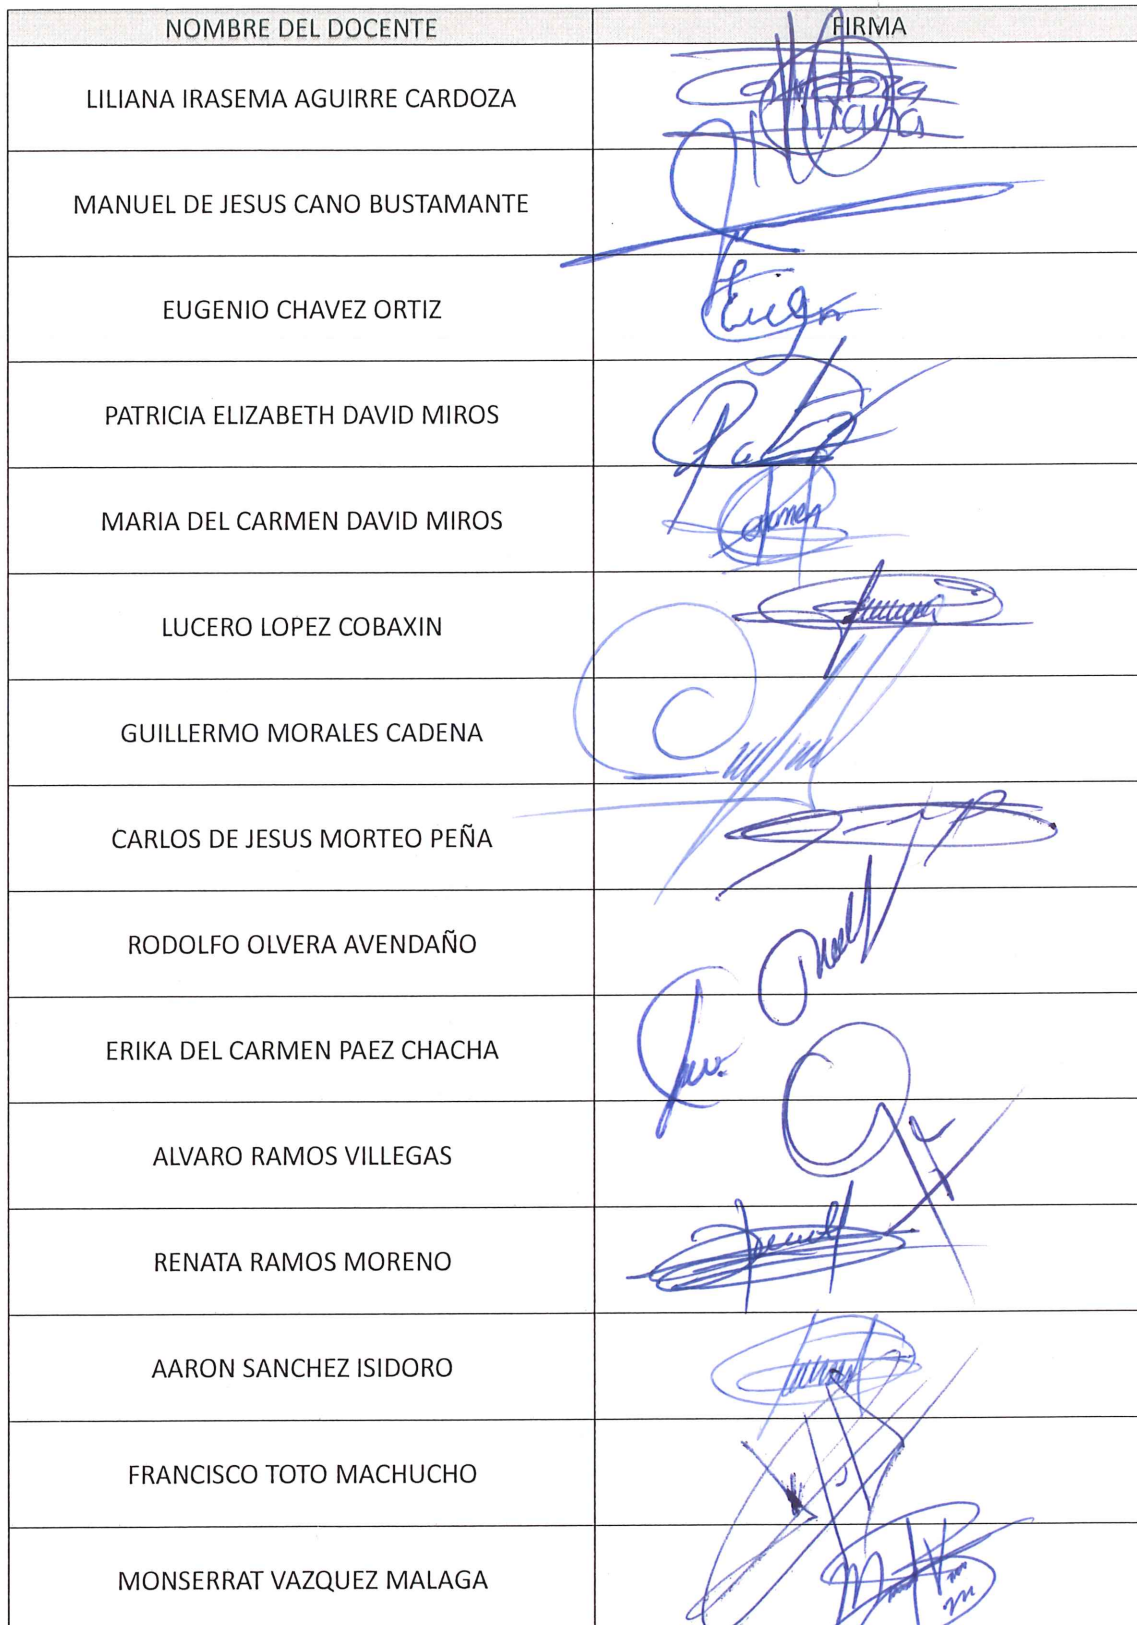 NOMBRE DEL DOCENTE FIRMA
LILIANA IRASEMA AGUIRRE CARDOZA
MANUEL DE JESUS CANO BUSTAMANTE
EUGENIO CHAVEZ ORTIZ
PATRICIA ELIZABETH DAVID MIROS
MARIA DEL CARMEN DAVID MIROS
LUCERO LOPEZ COBAXIN
GUILLERMO MORALES CADENA
CARLOS DE JESUS MORTEO PEÑA
RODOLFO OLVERA AVENDAÑO
ERIKA DEL CARMEN PAEZ CHACHA
ALVARO RAMOS VILLEGAS
RENATA RAMOS MORENO
AARON SANCHEZ ISIDORO
FRANCISCO TOTO MACHUCHO
MONSERRAT VAZQUEZ MALAGA